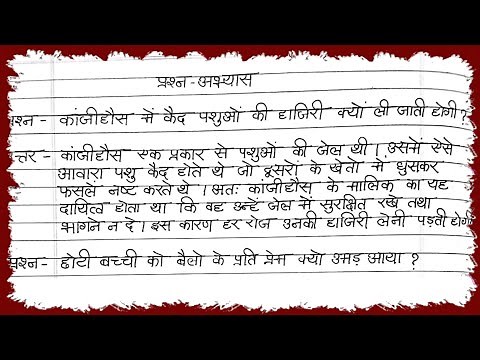 प्रश्न-अभ्यास
प्रश्न - कांजीहौस में कैद पशुओं की हाजिरी क्यों ली जाती होगी ?
उत्तर - कांजीहौस एक प्रकार से पशुओं की जेल थी। उसमें ऐसे
आवारा पशु कैद होते थे जो दूसरों के खेतों में घुसकर
फसलें नष्ट करते थे । अतः कांजीहौस के मालिक का यह
दायित्व होता था कि वह उन्हें जेल में सुरक्षित रखे तथा
भागने न दे। इस कारण हर रोज उनकी हाजिरी लेनी पड़ती होगी
प्रश्न - छोटी बच्ची को बैलों के प्रति प्रेम क्यों उमड़ आया ?